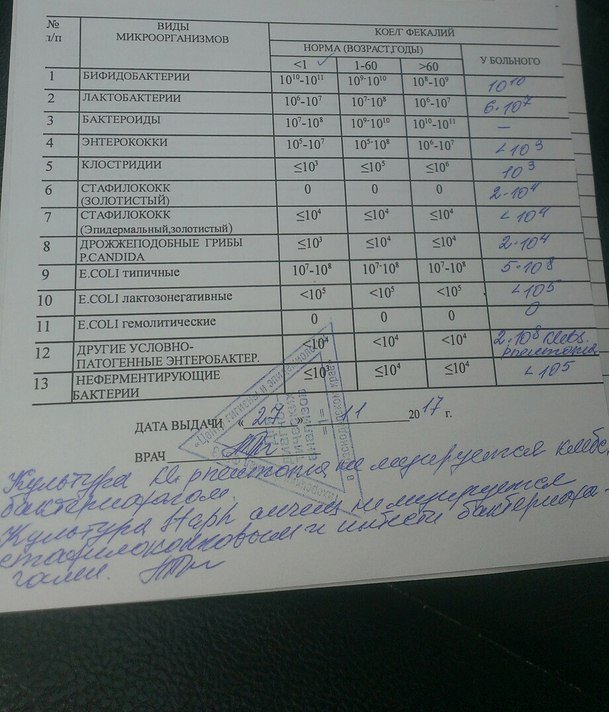 № п/п ВИДЫ МИКРООРГАНИЗМОВ КОЕ/Г ФЕКАЛИЙ
НОРМА (ВОЗРАСТ,ГОДЫ) У БОЛЬНОГО
<1 ✓ 1-60 >60
1 БИФИДОБАКТЕРИИ 10¹⁰-10¹¹ 10⁹-10¹⁰ 10⁸-10⁹ 10¹⁰
2 ЛАКТОБАКТЕРИИ 10⁶-10⁷ 10⁷-10⁸ 10⁶-10⁷ 6·10⁷
3 БАКТЕРОИДЫ 10⁷-10⁸ 10⁹-10¹⁰ 10¹⁰-10¹¹ —
4 ЭНТЕРОКОККИ 10⁵-10⁷ 10⁵-10⁸ 10⁶-10⁷ <10³
5 КЛОСТРИДИИ ≤10³ ≤10⁵ ≤10⁶ 10³
6 СТАФИЛОКОКК (ЗОЛОТИСТЫЙ) 0 0 0 2·10⁴
7 СТАФИЛОКОКК (Эпидермальный,золотистый) ≤10⁴ ≤10⁴ ≤10⁴ <10⁴
8 ДРОЖЖЕПОДОБНЫЕ ГРИБЫ Р.CANDIDA ≤10³ ≤10⁴ ≤10⁴ 2·10⁴
9 E.COLI типичные 10⁷-10⁸ 10⁷-10⁸ 10⁷-10⁸ 5·10⁸
10 E.COLI лактозонегативные <10⁵ <10⁵ <10⁵ <10⁵
11 E.COLI гемолитические 0 0 0 0
12 ДРУГИЕ УСЛОВНО-ПАТОГЕННЫЕ ЭНТЕРОБАКТЕР. ≤10⁴ <10⁴ <10⁴ 2·10⁸ Klebs. pneumonia
13 НЕФЕРМЕНТИРУЮЩИЕ БАКТЕРИИ ≤10³ ≤10⁴ ≤10⁴ <10⁵
ДАТА ВЫДАЧИ « 27 » 11 2017 г.
ВРАЧ
Культура Kl. pneumonia не лизируется клебс.
бактериофагом.
Культура Staph aureus не лизируется
стафилококковым и интести бактериофа-
гами.